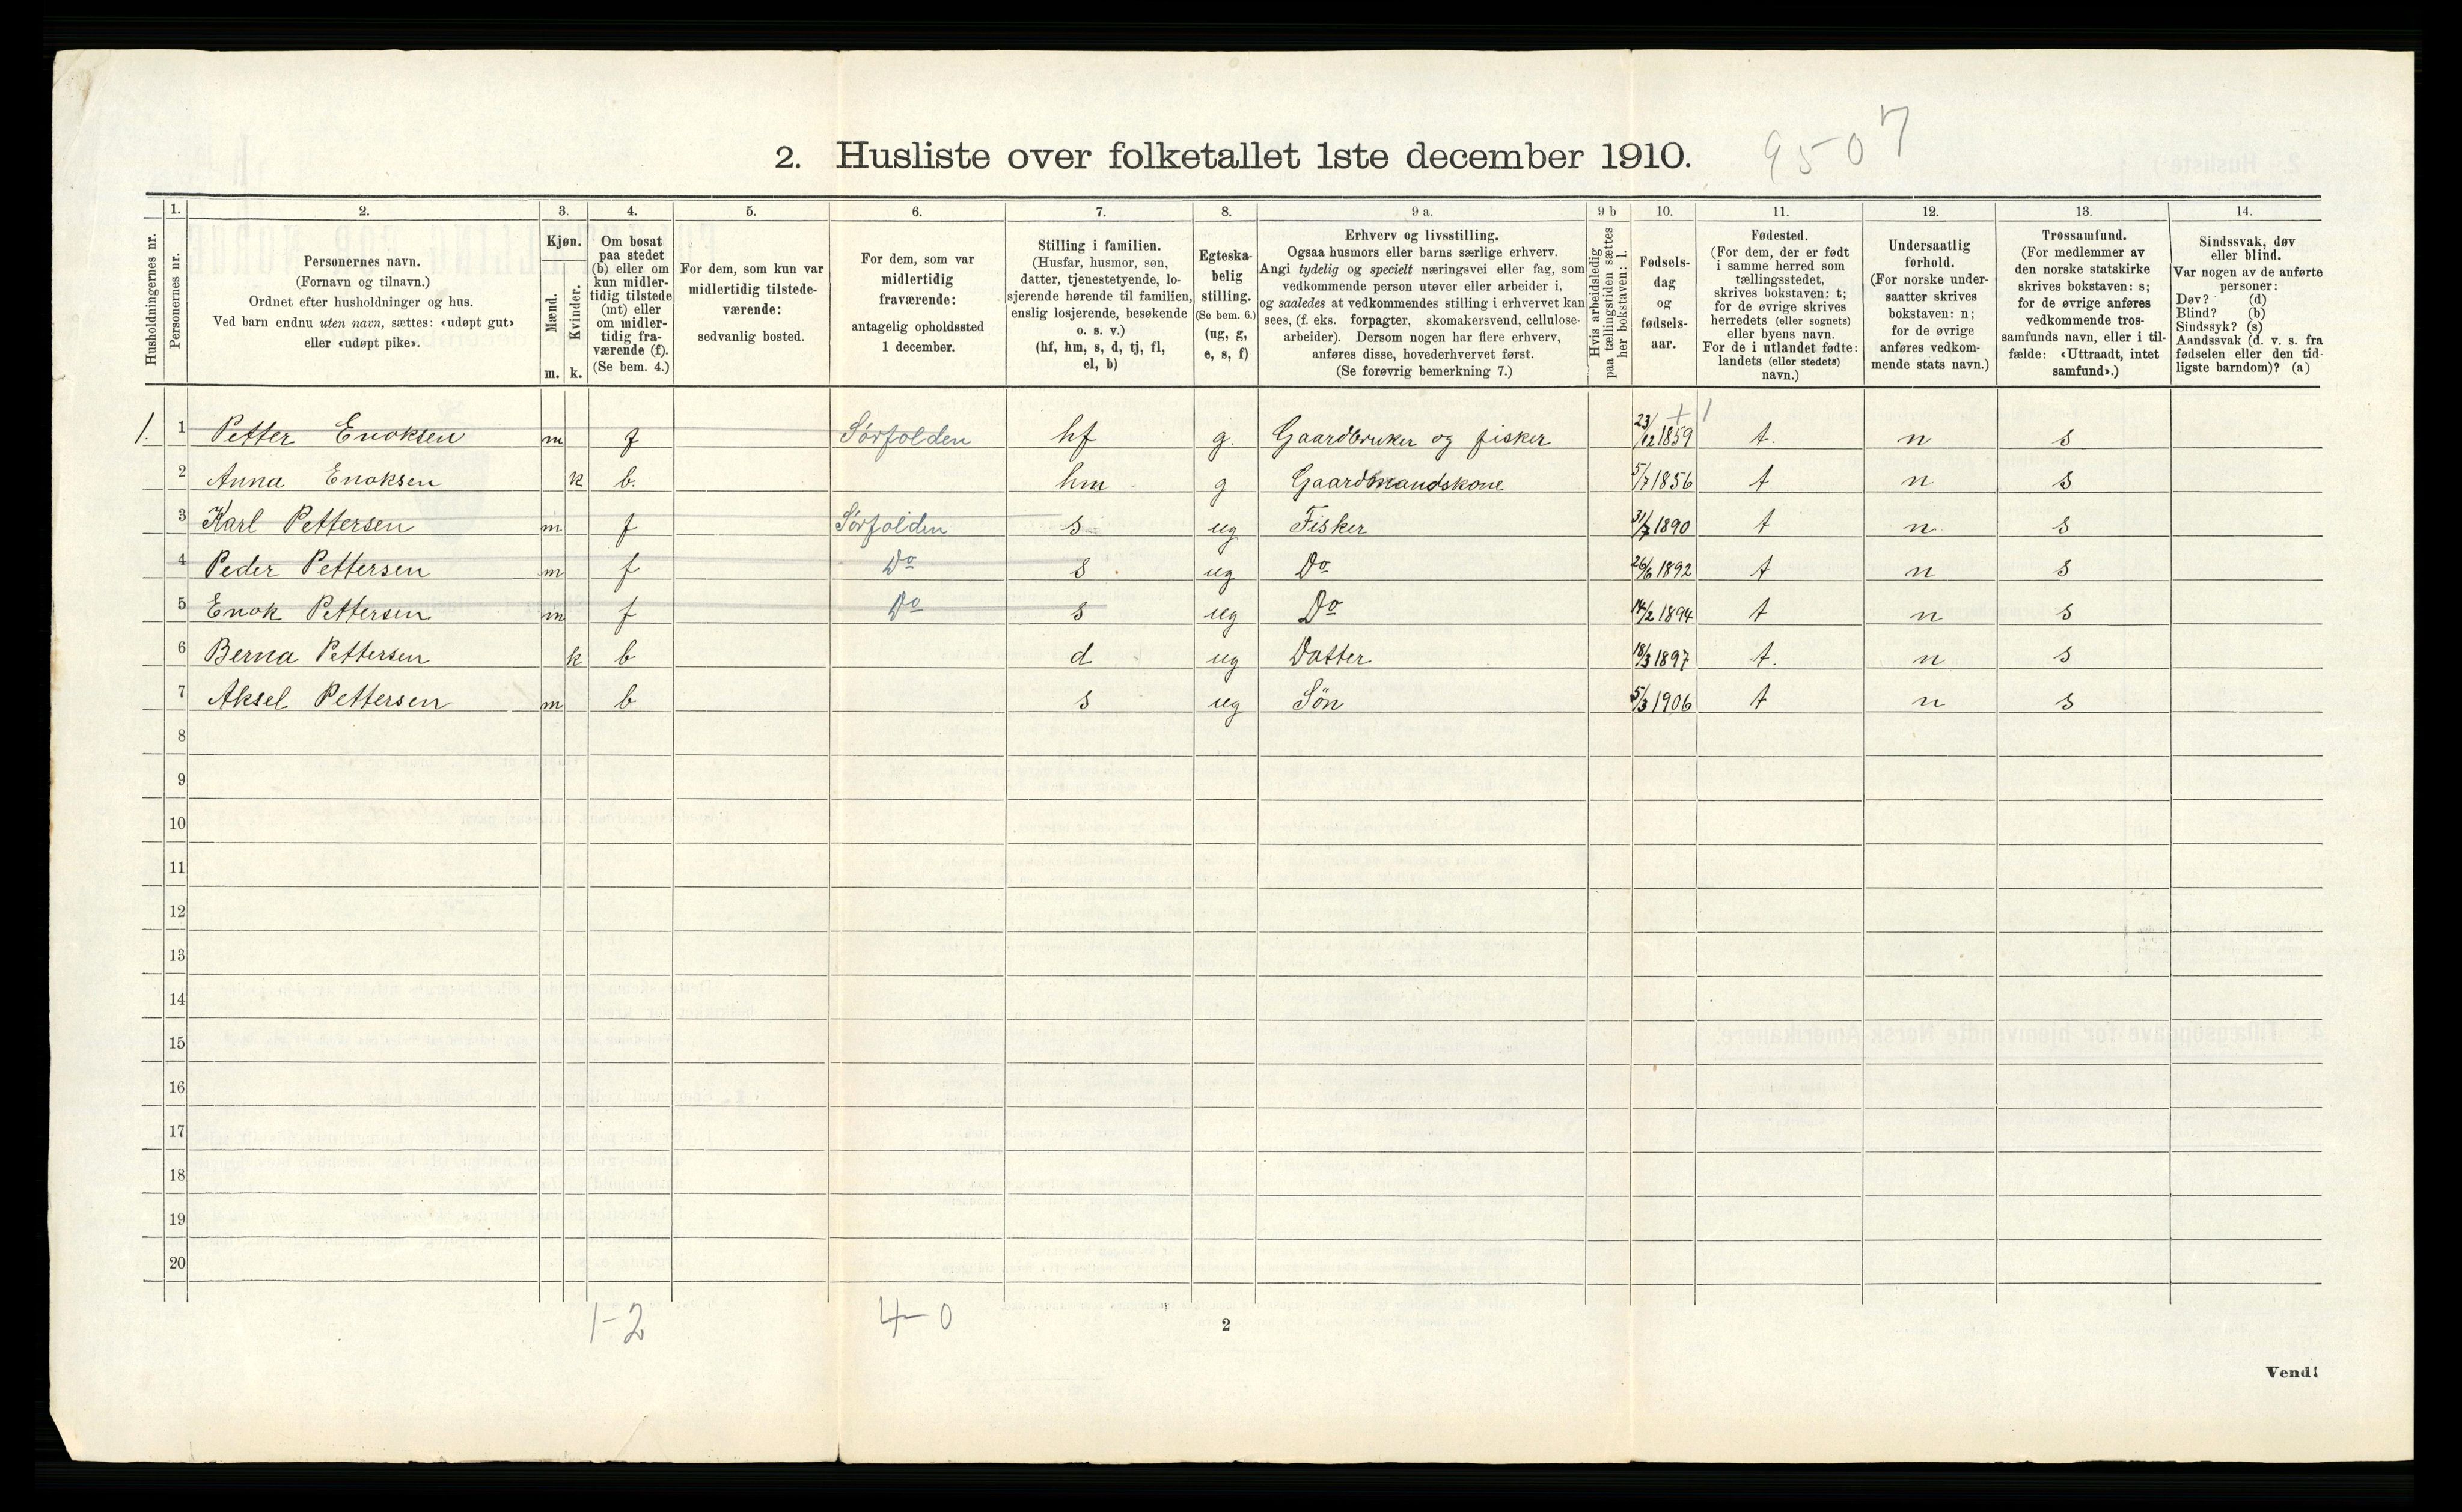 2. Husliste over folketallet 1ste december 1910.
9507
Husholdningernes nr.
1. Personernes nr.
2. Personernes navn.
(Fornavn og tilnavn.)
Ordnet efter husholdninger og hus.
Ved barn endnu uten navn, sættes: «udøpt gut»
eller «udøpt pike».
3. Kjøn.
Mænd. m.
Kvinder. k.
4. Om bosat
paa stedet
(b) eller om
kun midler-
tidig tilstede
(mt) eller
om midler-
tidig fra-
værende (f).
(Se bem. 4.)
5. For dem, som kun var
midlertidig tilstede-
værende:
sedvanlig bosted.
6. For dem, som var
midlertidig
fraværende:
antagelig opholdssted
1 december.
7. Stilling i familien.
(Husfar, husmor, søn,
datter, tjenestetyende, lo-
sjerende hørende til familien,
enslig losjerende, besøkende
o. s. v.)
(hf, hm, s, d, tj, fl,
el, b)
8. Egteska-
belig
stilling.
(Se bem. 6.)
(ug, g,
e, s, f)
9 a. Erhverv og livsstilling.
Ogsaa husmors eller barns særlige erhverv.
Angi tydelig og specielt næringsvei eller fag, som
vedkommende person utøver eller arbeider i,
og saaledes at vedkommendes stilling i erhvervet kan
sees, (f. eks. forpagter, skomakersvend, cellulose-
arbeider). Dersom nogen har flere erhverv,
anføres disse, hovederhvervet først.
(Se forøvrig bemerkning 7.)
9 b Hvis arbeidsledig
paa tællingstiden sættes
her bokstaven: l.
10. Fødsels-
dag
og
fødsels-
aar.
11. Fødested.
(For dem, der er født
i samme herred som
tællingsstedet,
skrives bokstaven: t;
for de øvrige skrives
herredets (eller sognets)
eller byens navn.
For de i utlandet fødte:
landets (eller stedets)
navn.)
12. Undersaatlig
forhold.
(For norske under-
saatter skrives
bokstaven: n;
for de øvrige
anføres vedkom-
mende stats navn.)
13. Trossamfund.
(For medlemmer av
den norske statskirke
skrives bokstaven: s;
for de øvrige anføres
vedkommende tros-
samfunds navn, eller i til-
fælde: «Uttraadt, intet
samfund».)
14. Sindssvak, døv
eller blind.
Var nogen av de anførte
personer:
Døv? (d)
Blind? (b)
Sindssyk? (s)
Aandssvak (d. v. s. fra
fødselen eller den tid-
ligste barndom)? (a)
1. 1 Petter Enoksen m f Sørfolden hf g. Gaardbruker og fisker 23/12 1859 t. n s
2 Anna Enoksen k b. hm g Gaardmandskone 5/7 1856 t n s
3 Karl Pettersen m f Sørfolden s ug Fisker 31/7 1890 t n s
4 Peder Pettersen m f Do s ug Do 26/6 1892 t n s
5 Enok Pettersen m f Do s ug Do 14/2 1894 t n s
6 Berna Pettersen k b d ug Datter 18/3 1897 t. n s
7 Aksel Pettersen m b s ug Søn 5/3 1906 t n s
8
9
10
11
12
13
14
15
16
17
18
19
20
1-2 4-0
2
Vend!